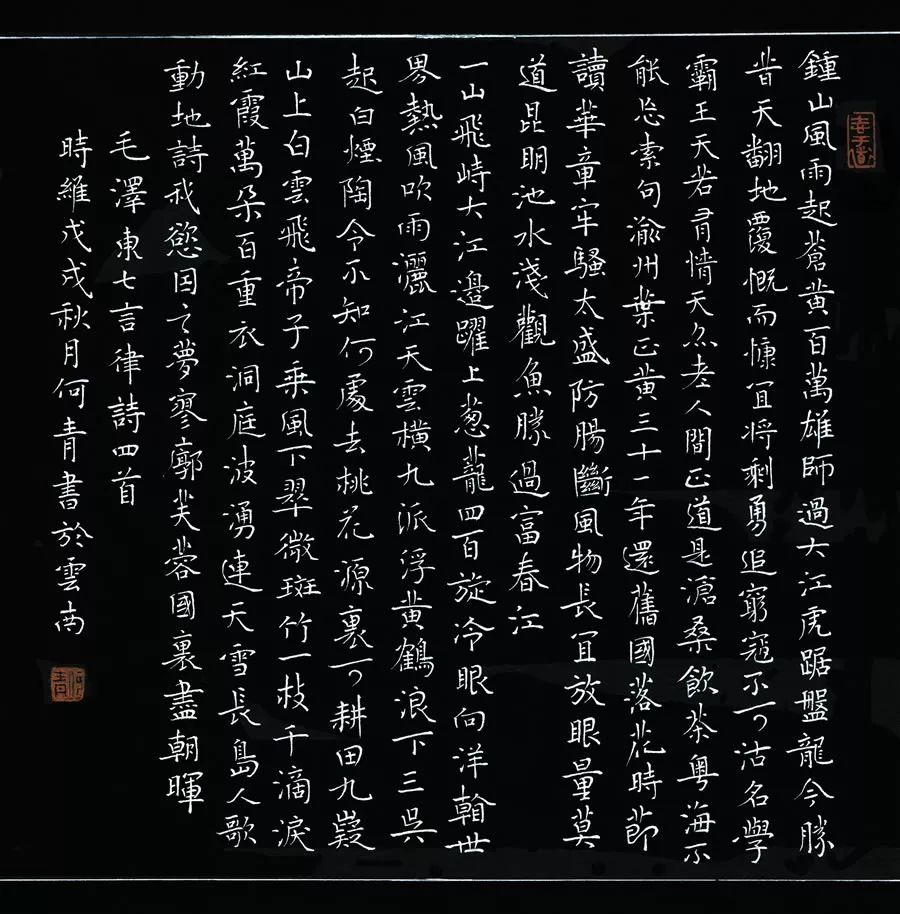 鍾山風雨起蒼黃百萬雄師過大江虎踞盤龍今勝
昔天翻地覆慨而慷宜將剩勇追窮寇不可沽名學
霸王天若有情天亦老人間正道是滄桑飲茶粵海不
能忘索句渝州葉正黃三十一年還舊國落花時節
讀華章牢騷太盛防腸斷風物長宜放眼量莫
道昆明池水淺觀魚勝過富春江
一山飛峙大江邊躍上蔥蘢四百旋冷眼向洋看世
界熱風吹雨灑江天雲橫九派浮黃鶴浪下三吳
起白煙陶令不知何處去桃花源裏可耕田九嶷
山上白雲飛帝子乘風下翠微斑竹一枝千滴淚
紅霞萬朵百重衣洞庭波湧連天雪長島人歌
動地詩我慾因之夢寥廓芙蓉國裏盡朝暉
毛澤東七言律詩四首
時維戊戌秋月何青書於雲南